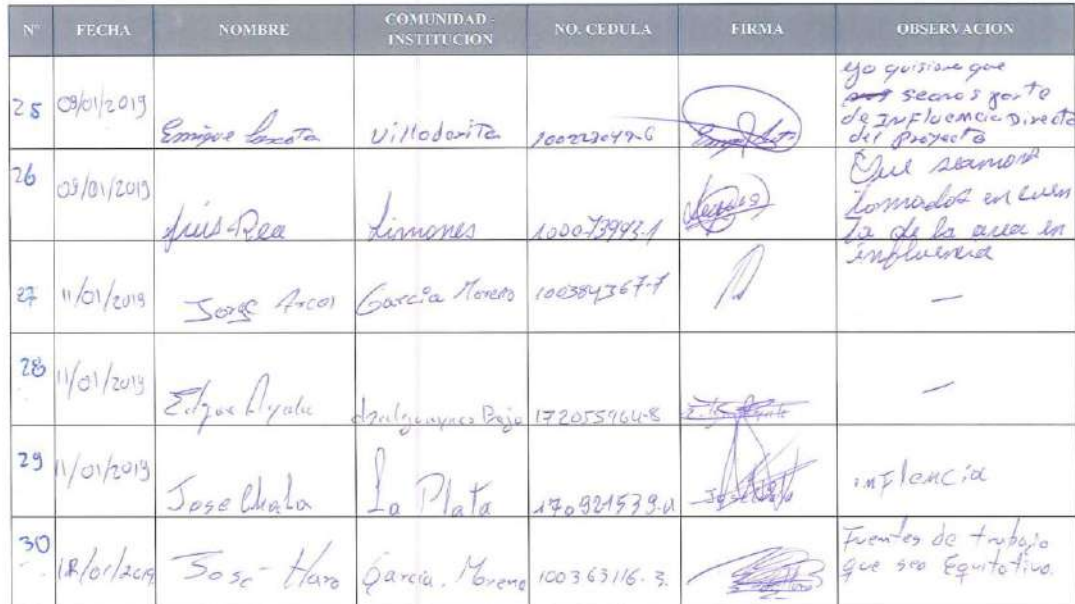 Nº FECHA NOMBRE COMUNIDAD - INSTITUCION NO. CEDULA FIRMA OBSERVACION
25 09/01/2019 Enrique Villadorita 100223049-6 Yo quisiera que
seamos parte
de Influencia Directa
del Proyecto
26 09/01/2019 Luis Rea Limones 100073993-1 Que seamos
tomados en cuen
ta de la area en
influencia
27 11/01/2019 Jorge Arcos Garcia Moreno 100384367-7 —
28 11/01/2019 Edgar Ayala Bajo 172055964-8 —
29 11/01/2019 Jose Chala La Plata 170921539 Jose Chala inflencia
30 /01/2019 Jose Haro Garcia. Moreno 100363116-3. Fuentes de trabajo
que sea Equitativo.